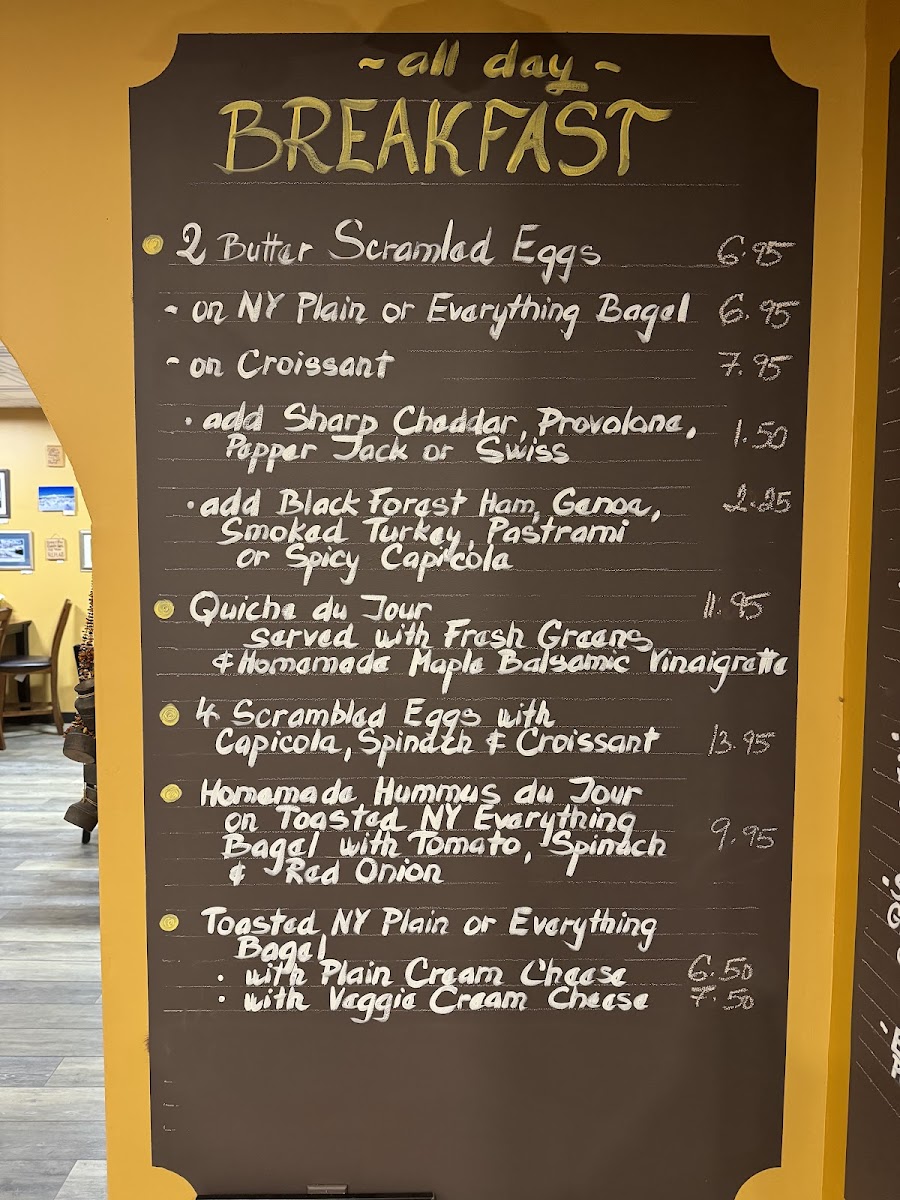 ~ all day ~
BREAKFAST
2 Butter Scramled Eggs 6.95
- on NY Plain or Everything Bagel 6.95
- on Croissant 7.95
· add Sharp Cheddar, Provolone, 1.50
Pepper Jack or Swiss
· add Black Forest Ham, Genoa, 2.25
Smoked Turkey, Pastrami
or Spicy Capicola
Quiche du Jour 11.95
served with Fresh Greens
& Homemade Maple Balsamic Vinaigrette
4 Scrambled Eggs with
Capicola, Spinach & Croissant 13.95
Homemade Hummus du Jour
on Toasted NY Everything
Bagel with Tomato, Spinach 9.95
& Red Onion
Toasted NY Plain or Everything
Bagel
· with Plain Cream Cheese 6.50
· with Veggie Cream Cheese 7.50